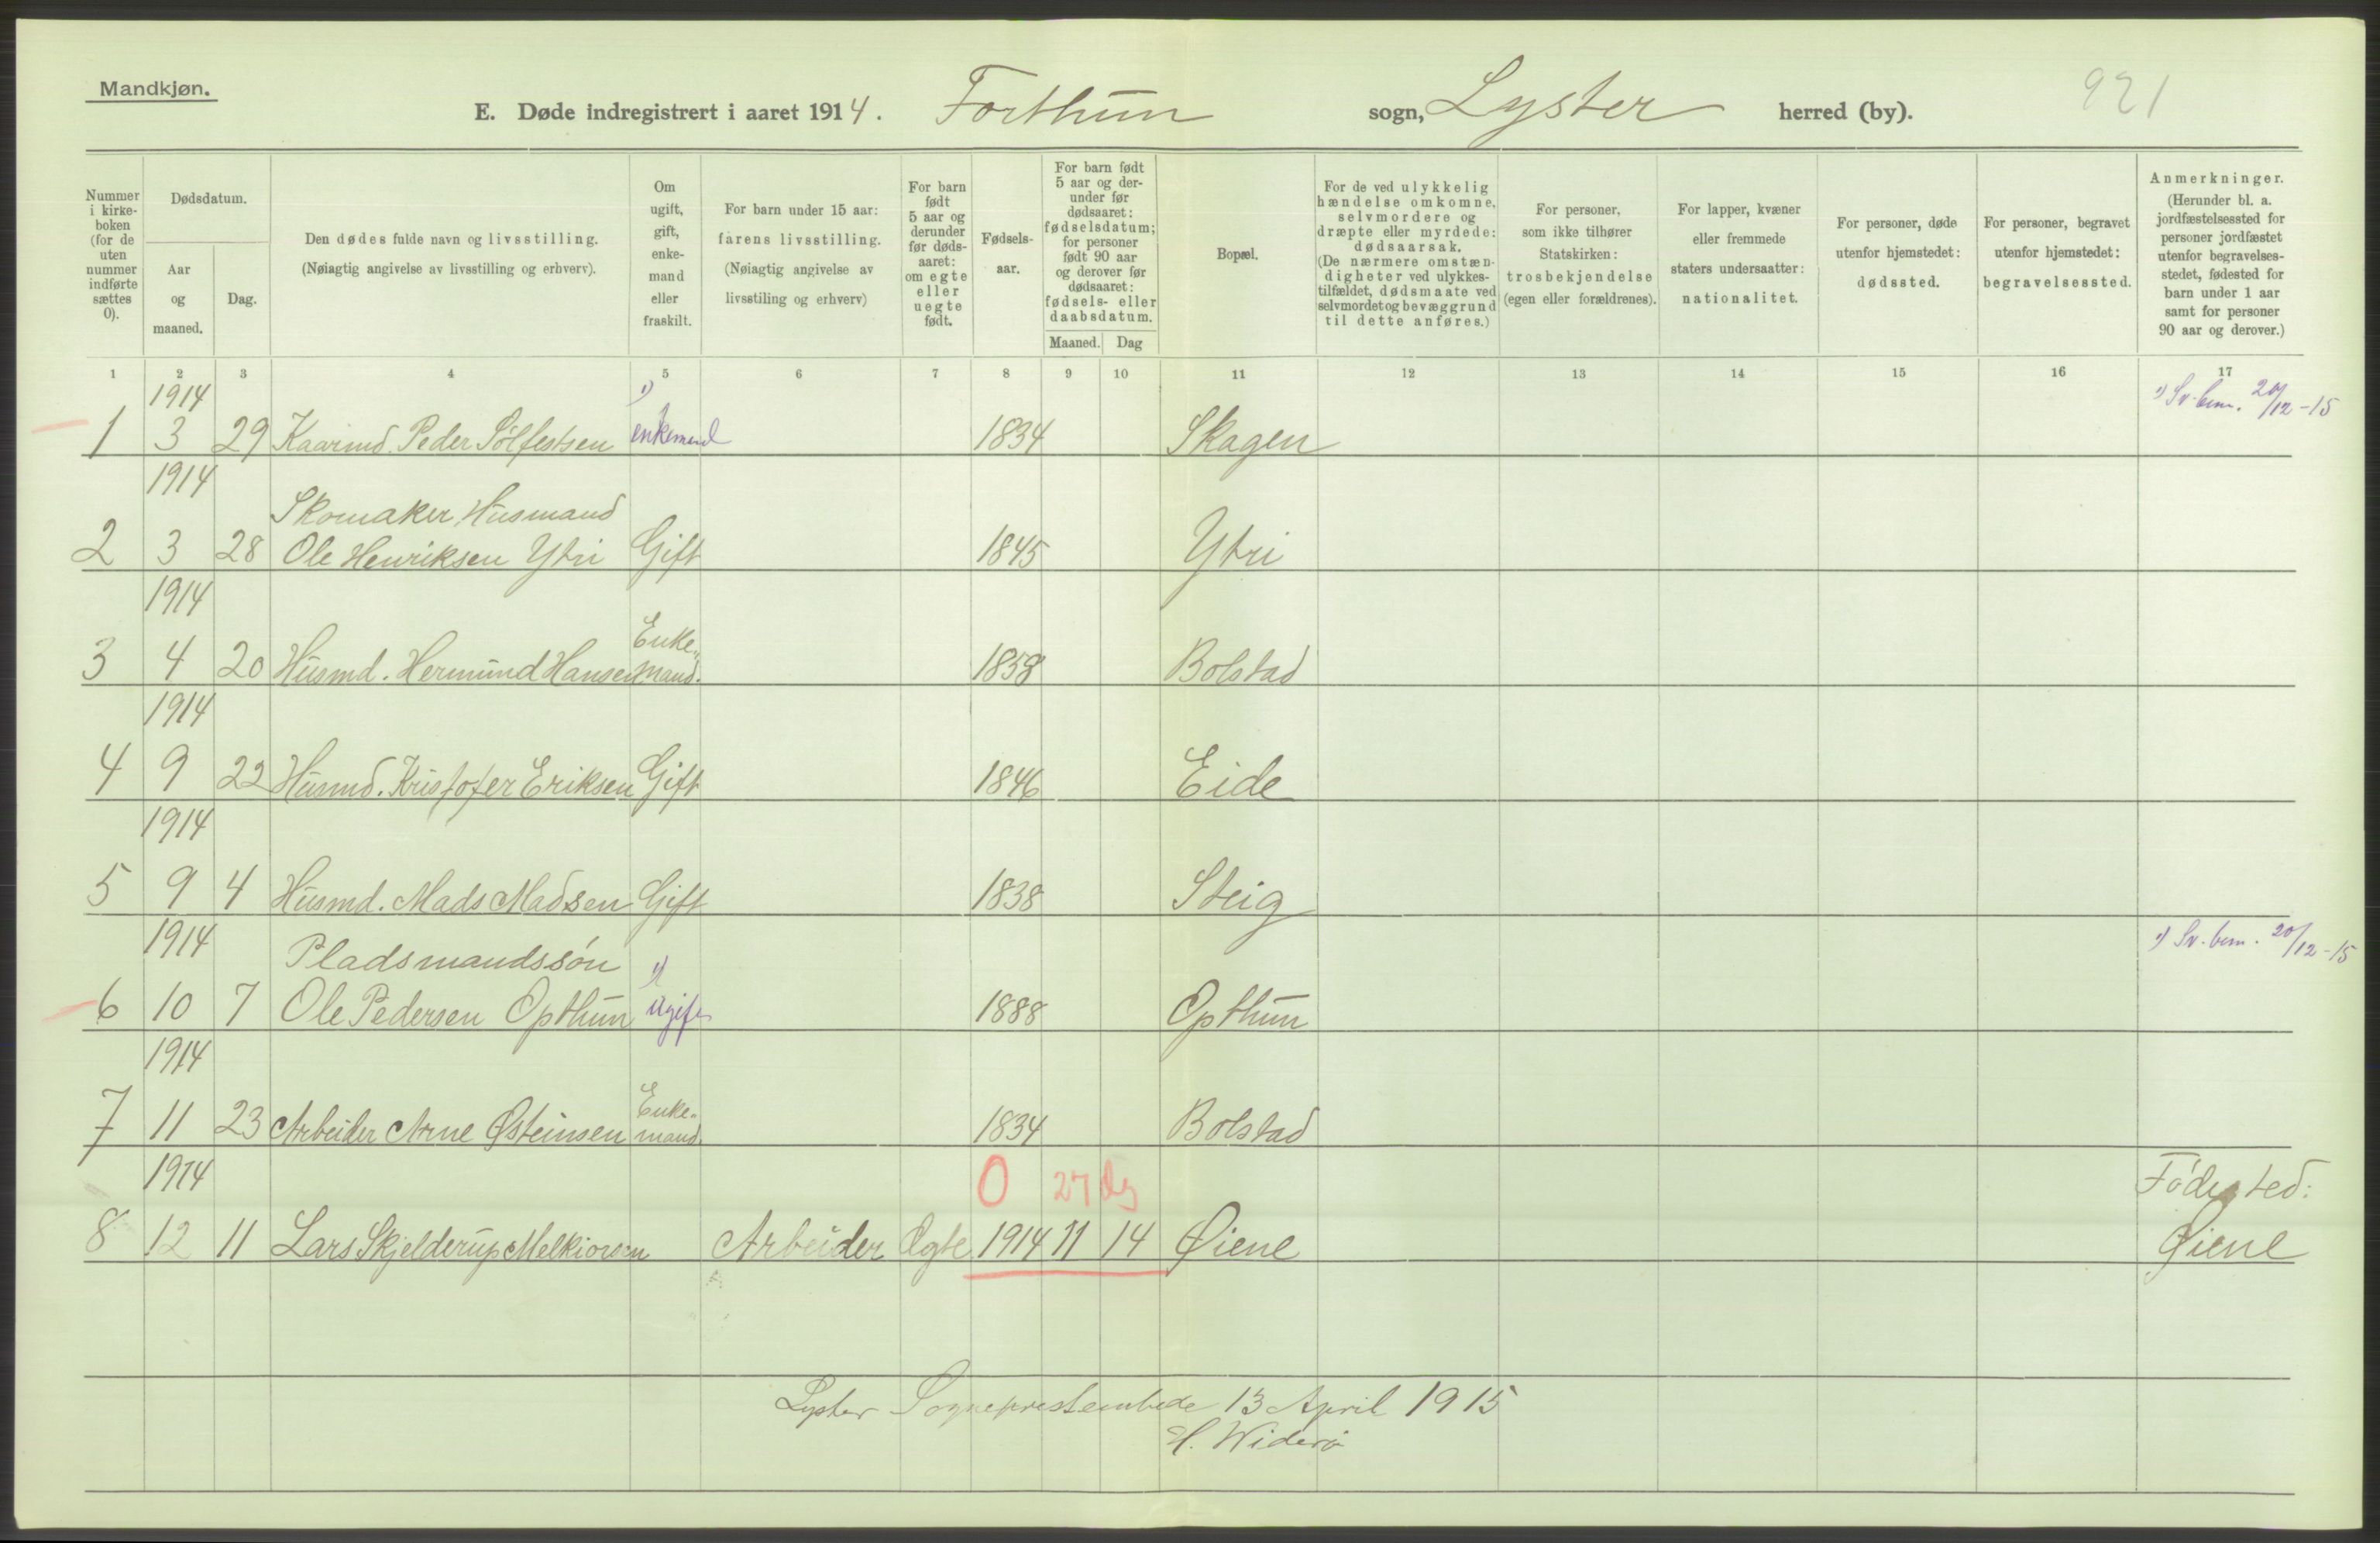 Mandkjøn.
E. Døde indregistrert i aaret 1914. Forthun sogn, Lyster herred (by). 921
Nummer i kirke-boken (for de uten nummer indførte sættes 0).
Dødsdatum.
Aar og maaned.
Dag.
Den dødes fulde navn og livsstilling.
(Nøiagtig angivelse av livsstilling og erhverv).
Om ugift, gift, enke-mand eller fraskilt.
For barn under 15 aar:
farens livsstilling.
(Nøiagtig angivelse av
livsstiling og erhverv)
For barn født 5 aar og derunder før døds-aaret: om egte eller uegte født.
Fødsels-aar.
For barn født 5 aar og der-under før dødsaaret: fødselsdatum; for personer født 90 aar og derover før dødsaaret: fødsels- eller daabsdatum.
Maaned. Dag
Bopæl.
For de ved ulykkelig hændelse omkomne, selvmordere og dræpte eller myrdede: dødsaarsak. (De nærmere omstæn-digheter ved ulykkes-tilfældet, dødsmaate ved selvmordet og bevæggrund til dette anføres.)
For personer, som ikke tilhører Statskirken: trosbekjendelse (egen eller forældrenes).
For lapper, kvæner eller fremmede staters undersaatter: nationalitet.
For personer, døde utenfor hjemstedet: dødssted.
For personer, begravet utenfor hjemstedet: begravelsessted.
Anmerkninger.
(Herunder bl. a. jordfæstelsessted for personer jordfæstet utenfor begravelses-stedet, fødested for barn under 1 aar samt for personer 90 aar og derover.)
1 2 3 4 5 6 7 8 9 10 11 12 13 14 15 16 17
1914 1) 1) Sv. bem. 20/12-15
1 3 29 Kaarmd. Peder Sølfestsen enkemand 1834 Skagen
1914
Skomaker, Husmand
2 3 28 Ole Henriksen Ytri Gift 1845 Ytri
1914
Enke-
3 4 20 Husmd. Hermund Hansen mand. 1858 Bolstad
1914
4 9 22 Husmd. Kristofer Eriksen Gift 1846 Eide
1914
5 9 4 Husmd. Mads Madsen Gift 1838 Steig
1914 1) Sv. bem. 20/12-15
Pladsmandssön 1)
6 10 7 Ole Pedersen Opthun ugift 1888 Opthun
1914
Enke-
7 11 23 Arbeider Arne Østeinsen mand. 1834 Bolstad
1914 0 27 Dg Födested:
8 12 11 Lars Skjelderup Melkiorsen Arbeider Ægte 1914 11 14 Øiene Øiene
Lyster Sogneprestembede 13 April 1915
H. Widerö